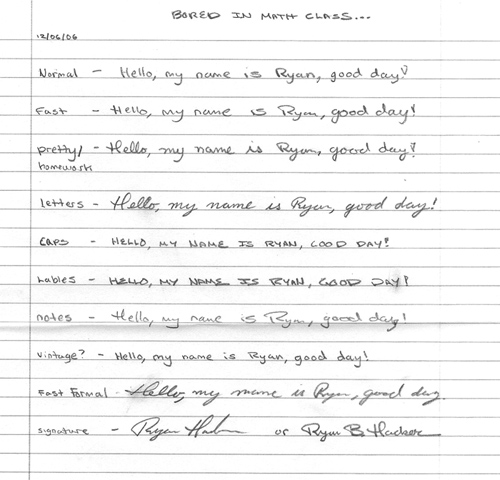 BORED IN MATH CLASS...
12/06/06
Normal - Hello, my name is Ryan, good day!
Fast - Hello, my name is Ryan, good day!
pretty/ - Hello, my name is Ryan, good day!
homework
letters - Hello, my name is Ryan, good day!
CAPS - HELLO, MY NAME IS RYAN, GOOD DAY!
lables - HELLO, MY NAME IS RYAN, GOOD DAY!
notes - Hello, my name is Ryan, good day!
vintage? - Hello, my name is Ryan, good day!
Fast Formal - Hello, my name is Ryan, good day
signature - Ryan or Ryan B